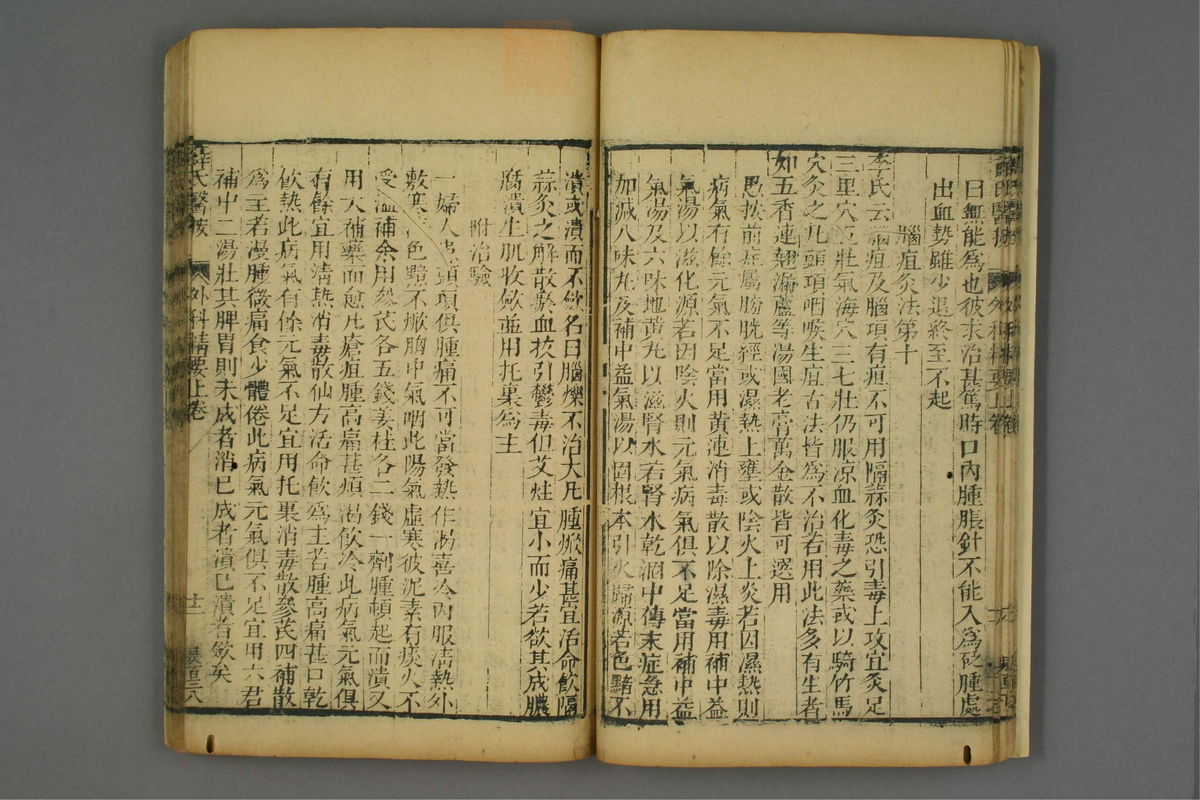 曰無能爲也彼求治甚篤時口內腫脹針不能入爲砭腫處
出血勢雖少退終至不起
腦疽灸法第十
李氏云腦疽及腦項有疽不可用隔蒜灸恐引毒上攻宜灸足
三里穴五壯氣海穴三七壯仍服凉血化毒之藥或以騎竹馬
穴灸之凡頭項咽喉生疽古法皆爲不治若用此法多有生者
如五香連翹漏蘆等湯國老膏萬金散皆可選用
愚按前症屬膀胱經或濕熱上壅或陰火上炎若因濕熱則
病氣有餘元氣不足當用黃連消毒散以除濕毒用補中益
氣湯以滋化源若因陰火則元氣病氣俱不足當用補中益
氣湯及六味地黃丸以滋腎水若腎水乾涸中傳末症急用
加减八味丸及補中益氣湯以固根本引火歸源若色黯不
潰或潰而不斂名曰腦爍不治大凡腫焮痛甚宜活命飲隔
蒜灸之解散瘀血拔引鬱毒但艾炷宜小而少若欲其成膿
腐潰生肌收斂並用托裏爲主
附治驗
一婦人患頭項俱腫痛不可當發熱作渴喜冷內服淸熱外
敷寒 色黯不焮胸中氣咽此陽氣虛寒彼泥素有痰火不
受溫補余用參芪各五錢姜桂各二錢一劑腫頓起而潰又
用大補藥而愈凡瘡疽腫高痛甚煩渴飲冷此病氣元氣俱
有餘宜用淸熱消毒散仙方活命飲爲主若腫高痛甚口乾
飲熱此病氣有餘元氣不足宜用托裏消毒散參芪四補散
爲主若漫腫微痛食少體倦此病氣元氣俱不足宜用六君
補中二湯壯其脾胃則未成者消已成者潰已潰者斂矣
薛氏醫按 外科精要上卷